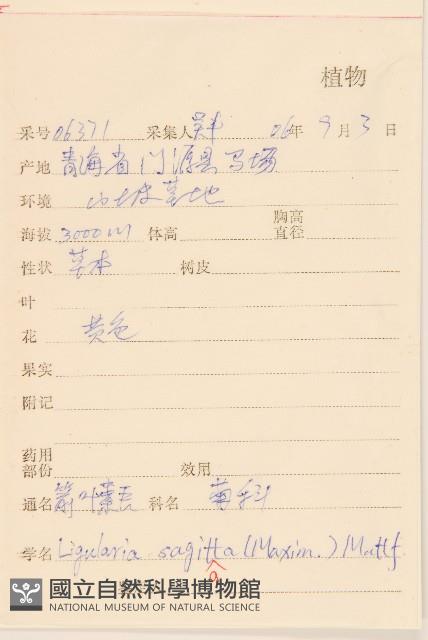 植物
采号 06371 采集人 吴丰 06年 9月3日
产地 青海省门源县马场
环境 山坡草地
海拔 3000m 体高 胸高直径
性状 草本 树皮
叶
花 黄色
果实
附记
药用部份 效用
通名 箭叶橐吾 科名 菊科
学名 Ligularia sagitta (Maxim.) Mattf
a
國立自然科學博物館
NATIONAL MUSEUM OF NATURAL SCIENCE